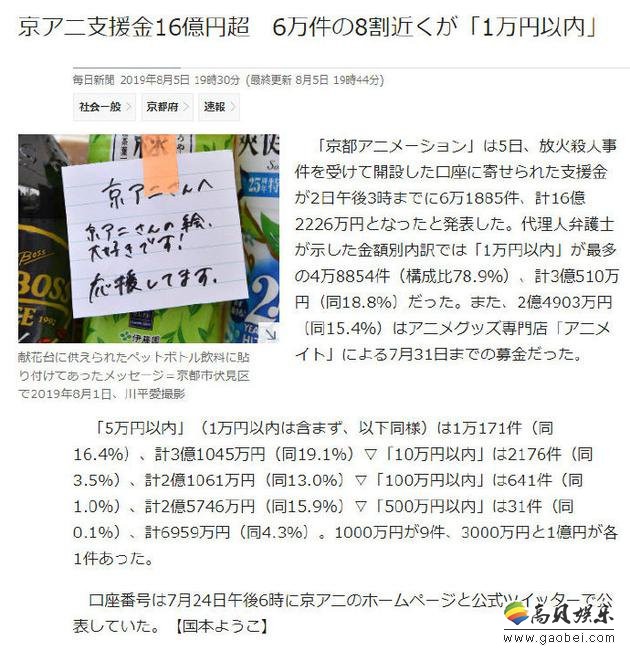 京アニ支援金16億円超　6万件の8割近くが「1万円以内」
毎日新聞 2019年8月5日 19時30分 (最終更新 8月5日 19時44分)
社会一般
京都府
速報
京アニさんへ
京アニさんの絵、
大好きです!
応援してます。
BOSS
1992
伊藤園
献花台に供えられたペットボトル飲料に貼
り付けてあったメッセージ＝京都市伏見区
で2019年8月1日、川平愛撮影
「京都アニメーション」は5日、放火殺人事
件を受けて開設した口座に寄せられた支援金
が2日午後3時までに6万1885件、計16億
2226万円となったと発表した。代理人弁護士
が示した金額別内訳では「1万円以内」が最多
の4万8854件（構成比78.9%）、計3億510万
円（同18.8%）だった。また、2億4903万円
（同15.4%）はアニメグッズ専門店「アニメ
イト」による7月31日までの募金だった。
「5万円以内」（1万円以内は含まず、以下同様）は1万171件（同
16.4%）、計3億1045万円（同19.1%）▽「10万円以内」は2176件（同
3.5%）、計2億1061万円（同13.0%）▽「100万円以内」は641件（同
1.0%）、計2億5746万円（同15.9%）▽「500万円以内」は31件（同
0.1%）、計6959万円（同4.3%）。1000万円が9件、3000万円と1億円が各
1件あった。
口座番号は7月24日午後6時に京アニのホームページと公式ツイッターで公
表していた。【国本ようこ】
高贝娱乐
www.gaobei.com